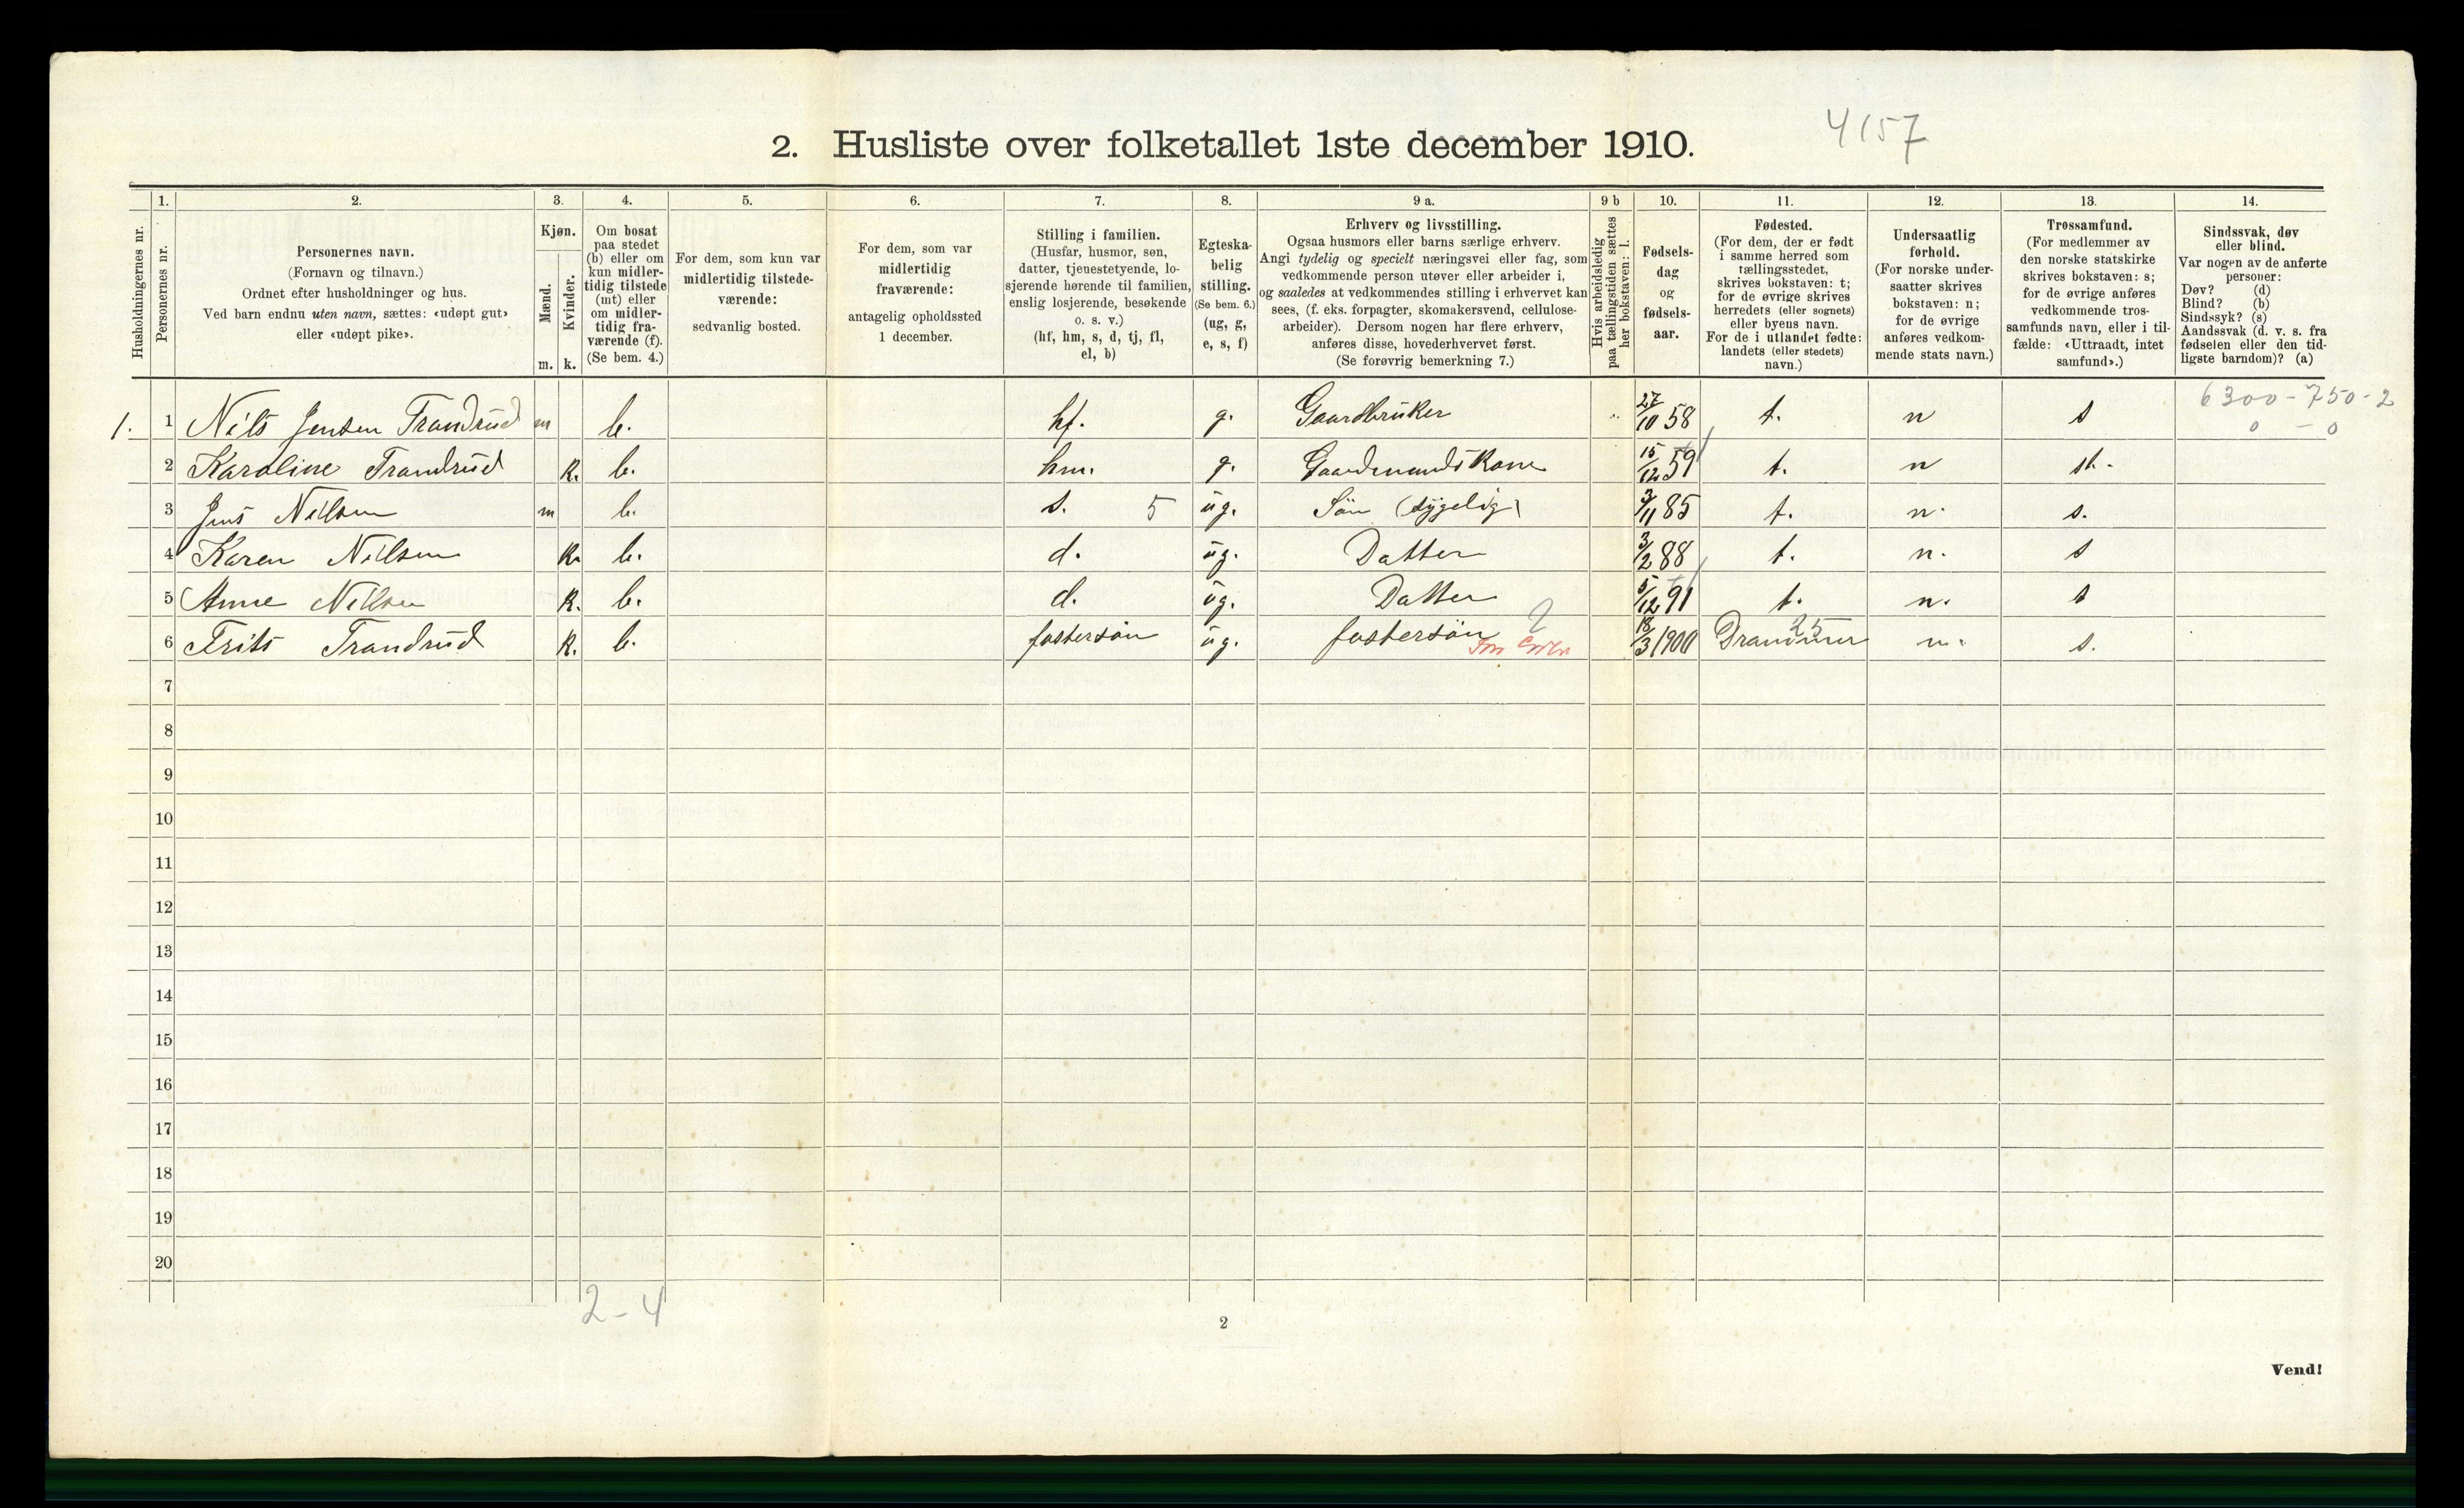 4157
2. Husliste over folketallet 1ste december 1910.
Husholdningernes nr.
1.
Personernes nr.
2.
Personernes navn.
(Fornavn og tilnavn.)
Ordnet efter husholdninger og hus.
Ved barn endnu uten navn, sættes: «udøpt gut»
eller «udøpt pike».
3.
Kjøn.
Mænd.
Kvinder.
m. k.
4.
Om bosat
paa stedet
(b) eller om
kun midler-
tidig tilstede
(mt) eller
om midler-
tidig fra-
værende (f).
(Se bem. 4.)
5.
For dem, som kun var
midlertidig tilstede-
værende:
sedvanlig bosted.
6.
For dem, som var
midlertidig
fraværende:
antagelig opholdssted
1 december.
7.
Stilling i familien.
(Husfar, husmor, søn,
datter, tjenestetyende, lo-
sjerende hørende til familien,
enslig losjerende, besøkende
o. s. v.)
(hf, hm, s, d, tj, fl,
el, b)
8.
Egteska-
belig
stilling.
(Se bem. 6.)
(ug, g,
e, s, f)
9 a.
Erhverv og livsstilling.
Ogsaa husmors eller barns særlige erhverv.
Angi tydelig og specielt næringsvei eller fag, som
vedkommende person utøver eller arbeider i,
og saaledes at vedkommendes stilling i erhvervet kan
sees, (f. eks. forpagter, skomakersvend, cellulose-
arbeider). Dersom nogen har flere erhverv,
anføres disse, hovederhvervet først.
(Se forøvrig bemerkning 7.)
9 b
Hvis arbeidsledig
paa tællingstiden sættes
her bokstaven: l.
10.
Fødsels-
dag
og
fødsels-
aar.
11.
Fødested.
(For dem, der er født
i samme herred som
tællingsstedet,
skrives bokstaven: t;
for de øvrige skrives
herredets (eller sognets)
eller byens navn.
For de i utlandet fødte:
landets (eller stedets)
navn.)
12.
Undersaatlig
forhold.
(For norske under-
saatter skrives
bokstaven: n;
for de øvrige
anføres vedkom-
mende stats navn.)
13.
Trossamfund.
(For medlemmer av
den norske statskirke
skrives bokstaven: s;
for de øvrige anføres
vedkommende tros-
samfunds navn, eller i til-
fælde: «Uttraadt, intet
samfund».)
14.
Sindssvak, døv
eller blind.
Var nogen av de anførte
personer:
Døv? (d)
Blind? (b)
Sindssyk? (s)
Aandssvak (d. v. s. fra
fødselen eller den tid-
ligste barndom)? (a)
6300-750-2
0 - 0
1. 1 Nils Jensen Trandrud m b. hf. g. Gaardbruker 27/10 58 t. n s
2 Karoline Trandrud k. b. hm. g. Gaardmandskone 15/12 59 t. n st.
3 Jens Nilsen m b. s. 5 ug. Søn (sygelig) 3/11 85 t. n. s.
4 Karen Nilsen k. b. d. ug. Datter 3/2 88 t. n. s
5 Anne Nilsen k. b. d. ug. Datter 5/12 91 t. n. s
6 Frits Trandrud k. b. fostersøn ug. fostersøn 18/3 1900 Drammen 25 n. s.
7
8
9
10
11
12
13
14
15
16
17
18
19
20
2-4
2
Vend!